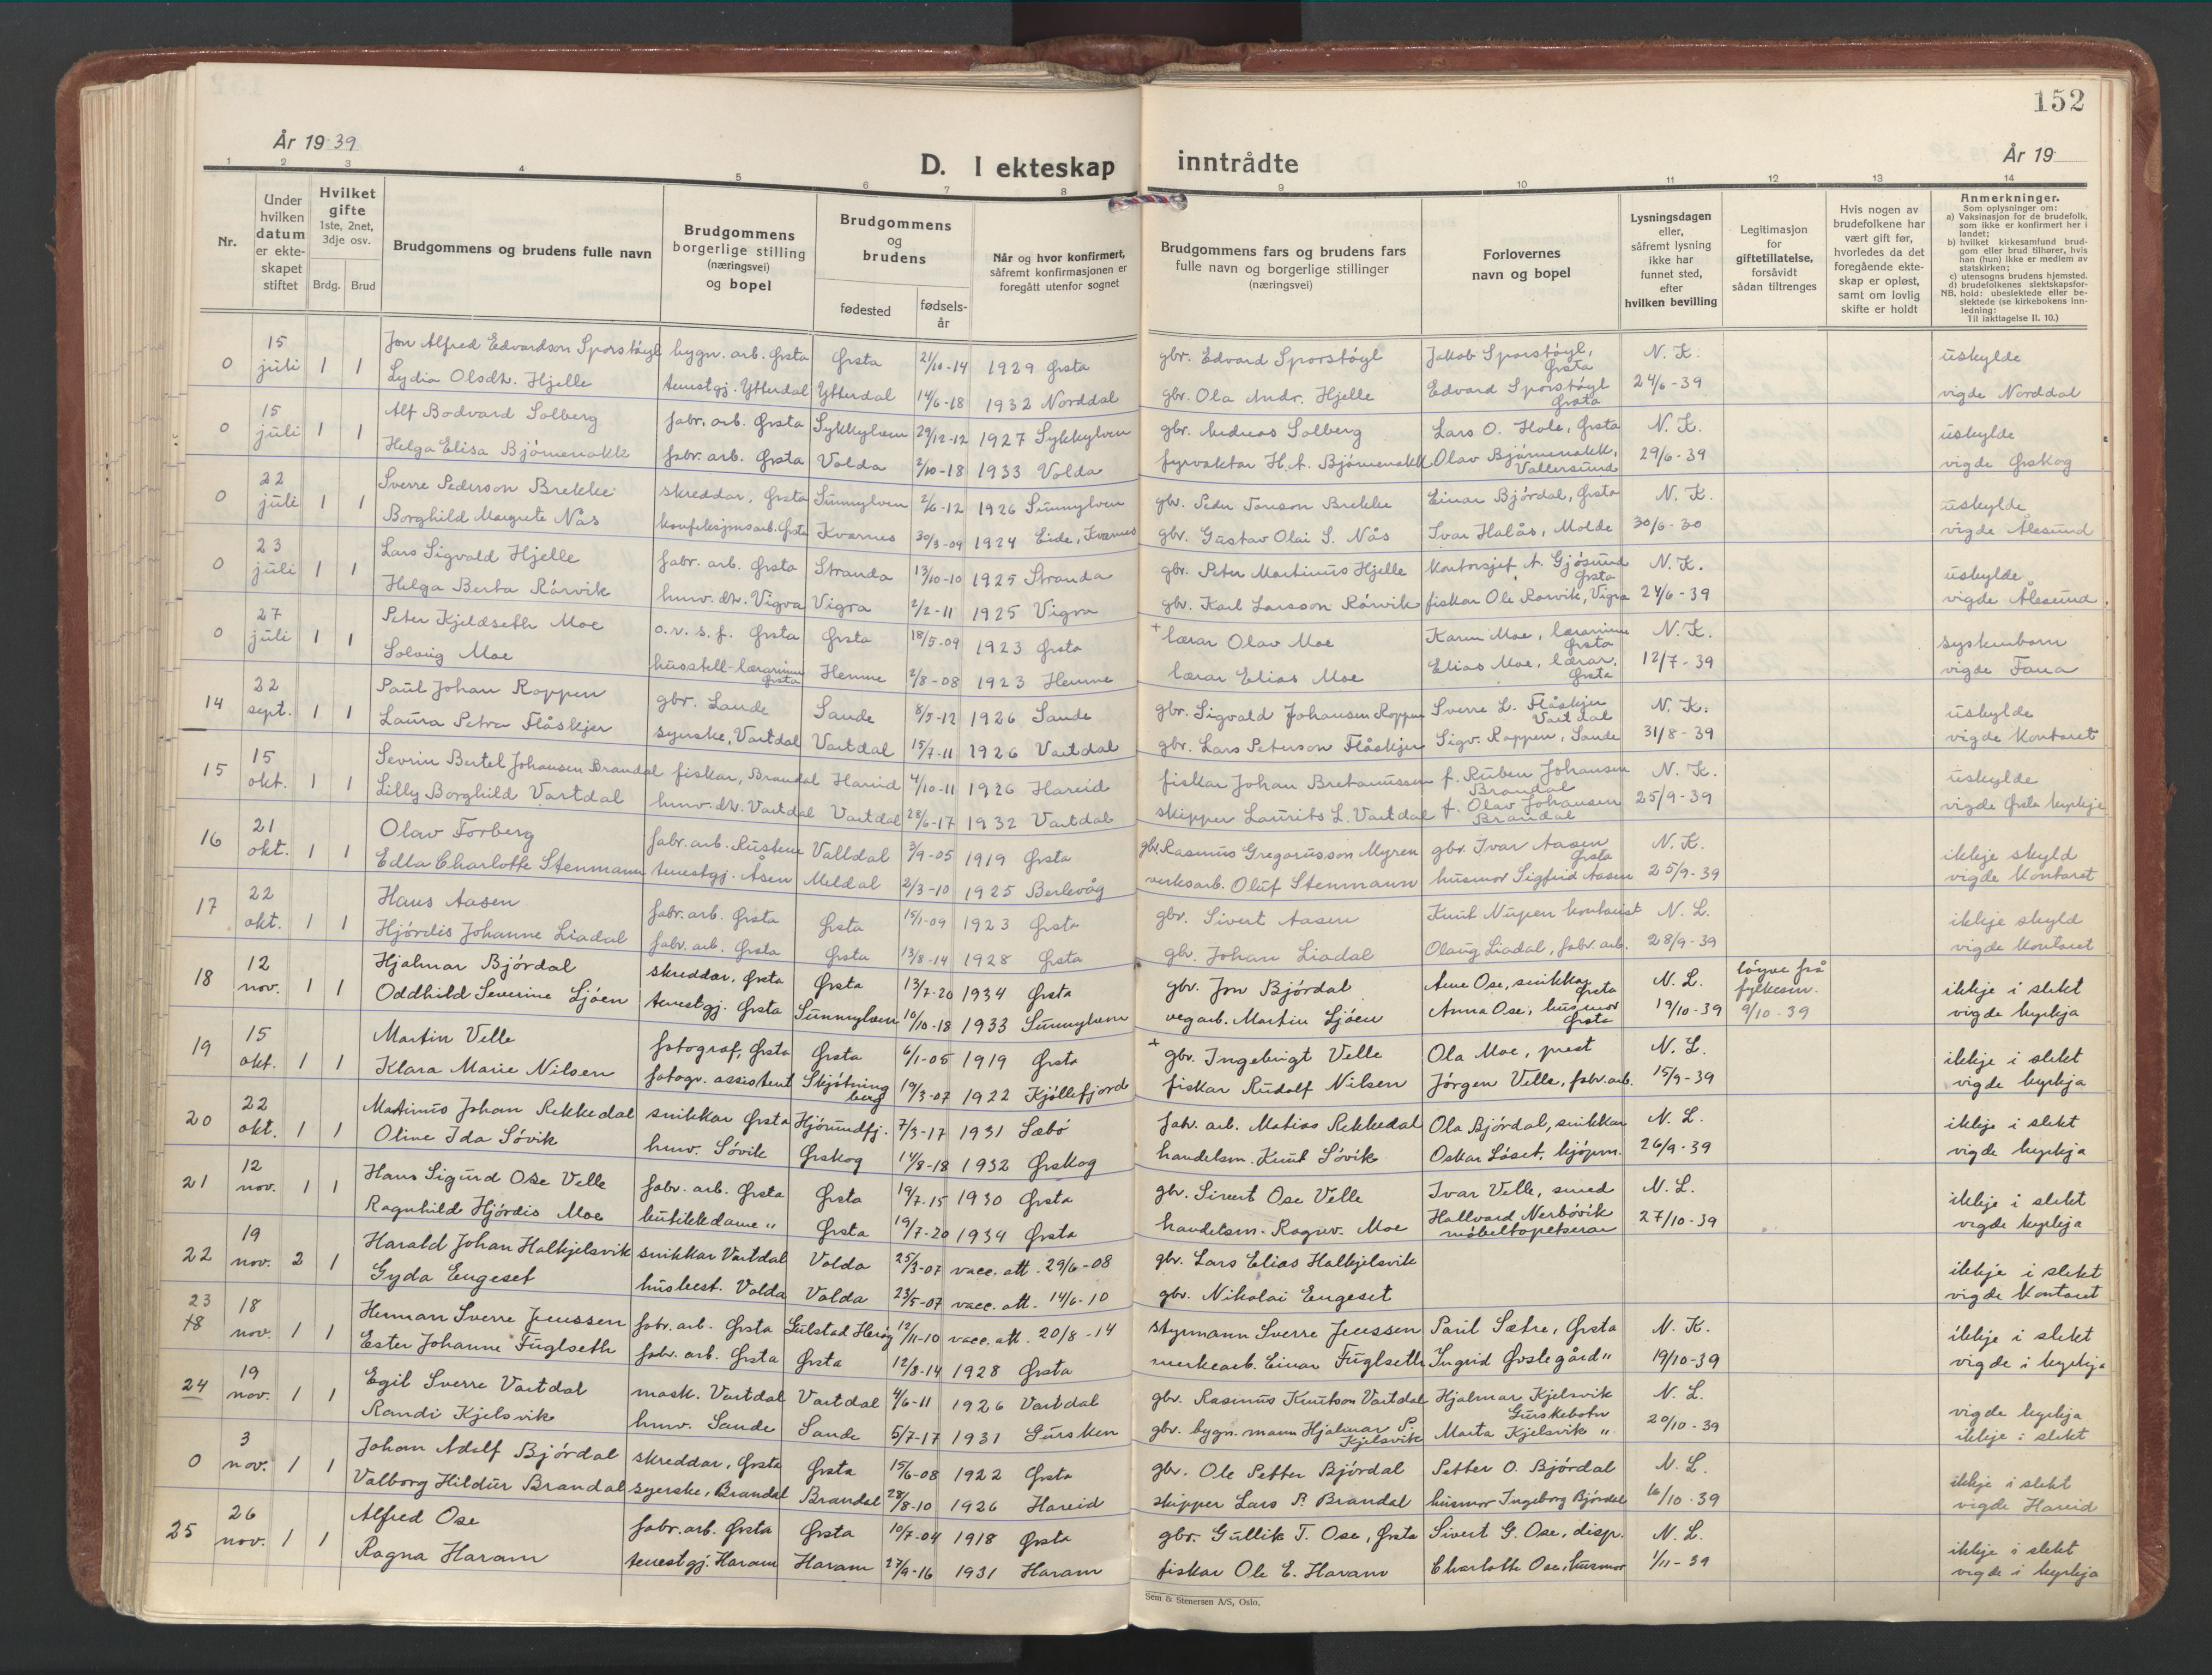 152
År 1939
D. I ekteskap inntrådte
År 19
1 2 3 4 5 6 7 8 9 10 11 12 13 14
Nr.
Under hvilken datum er ekteskapet stiftet
Hvilket gifte 1ste, 2net, 3dje osv.
Brdg. Brud
Brudgommens og brudens fulle navn
Brudgommens borgerlige stilling (næringsvei) og bopel
Brudgommens og brudens
fødested
fødselsår
Når og hvor konfirmert, såfremt konfirmasjonen er foregått utenfor sognet
Brudgommens fars og brudens fars fulle navn og borgerlige stillinger (næringsvei)
Forlovernes navn og bopel
Lysningsdagen eller, såfremt lysning ikke har funnet sted, efter hvilken bevilling
Legitimasjon for giftetillatelse, forsåvidt sådan tiltrenges
Hvis nogen av brudefolkene har vært gift før, hvorledes da det foregående ekteskap er opløst, samt om lovlig skifte er holdt
Anmerkninger.
Som oplysninger om:
a) Vaksinasjon for de brudefolk, som ikke er konfirmert her i landet;
b) hvilket kirkesamfund brudgom eller brud tilhører, hvis han (hun) ikke er medlem av statskirken;
c) utensogns brudens hjemsted.
d) brudefolkenes slektskapsforhold: ubeslektede eller beslektede (se kirkebokens innledning:
NB. Til iakttagelse II. 10.)
0 15 juli 1 1 Jon Alfred Edvardson Sporstøyl bygn. arb. Ørsta Ørsta 21/10-14 1929 Ørsta gbr. Edvard Sporstøyl Jakob Sporstøyl, Ørsta N. K. uskylde
Lydia Olsdt. Hjelle tenestgj. Ytterdal Ytterdal 14/6-18 1932 Norddal gbr. Ola Andr. Hjelle Edvard Sporstøyl Ørsta 24/6-39 vigde Norddal
0 15 juli 1 1 Alf Bodvard Solberg fabr. arb. Ørsta Sykkylven 29/12-12 1927 Sykkylven gbr. Andreas Solberg Lars O. Hole, Ørsta N. K. uskylde
Helga Elisa Bjørnenakk fabr. arb. Ørsta Volda 2/10-18 1933 Volda fyrvaktar H. A. Bjørnenakk Olav Bjørnenakk, Vallersund 29/6-39 vigde Ørskog
0 22 juli 1 1 Sverre Pederson Brekke skreddar, Ørsta Sunnylven 2/6-12 1926 Sunnylven gbr. Peder Tonson Brekke Einar Bjørdal, Ørsta N. K. uskylde
Borghild Margrete Nås konfeksjonsarb. Ørsta Kvernes 30/3-09 1924 Eide, Kvernes gbr. Gustav Olai S. Nås Ivar Halås, Molde 30/6-30 vigde Ålesund
0 23 juli 1 1 Lars Sigvald Hjelle fabr. arb. Ørsta Stranda 13/10-10 1925 Stranda gbr. Peter Martinus Hjelle kontorsjef A. Gjøsund Ørsta N. K. uskylde
Helga Berta Rørvik husv. dt. Vigra Vigra 2/2-11 1925 Vigra gbr. Karl Larsson Rørvik fiskar Ole Rørvik, Vigra 24/6-39 vigde Ålesund
0 27 juli 1 1 Peter Kjeldseth Moe o.r.s.f. Ørsta Ørsta 18/5-09 1923 Ørsta + lærar Olav Moe Karen Moe, lærarinne Ørsta N. K. syskenborn
Solveig Moe husstell-lærarinne Ørsta Hemne 2/8-08 1923 Hemne lærar Elias Moe Elias Moe, lærar, Ørsta 12/7-39 vigde Fana
14 22 sept. 1 1 Paul Johan Roppen gbr. Sande Sande 8/5-12 1926 Sande gbr. Sigvald Johansen Roppen Sverre L. Flåskjer Vartdal N. K. uskylde
Laura Petra Flåskjer syerske, Vartdal Vartdal 15/7-11 1926 Vartdal gbr. Lars Peterson Flåskjer Sigv. Roppen, Sande 31/8-39 vigde kontoret
15 15 okt. 1 1 Sevrin Bertel Johansen Brandal fiskar, Brandal Hareid 4/10-11 1926 Hareid fiskar Johan Bretanussen f. Ruben Johansen Brandal N. K. uskylde
Lilly Borghild Vartdal husv. dt. Vartdal Vartdal 28/6-17 1932 Vartdal skipper Laurits L. Vartdal f. Olav Johansen Brandal 25/9-39 vigde Ørsta kyrkje
16 21 okt. 1 1 Olav Forberg fabr. arb. Rustene Valldal 3/9-05 1919 Ørsta gbr. Rasmus Gregoriusson Myren gbr. Ivar Aasen Ørsta N. K. ikkje skyld
Edla Charlotte Stenmann tenestgj. Åsen Meldal 2/3-10 1925 Berlevåg verksarb. Oluf Stenmann husmor Sigfrid Aasen 25/9-39 vigde kontoret
17 22 okt. 1 1 Hans Aasen fabr. arb. Ørsta Ørsta 15/1-09 1923 Ørsta gbr. Sivert Aasen Knut Nupen kontorist N. L. ikkje skyld
Hjørdis Johanne Liadal fabr. arb. Ørsta Ørsta 13/8-14 1928 Ørsta gbr. Johan Liadal Olaug Liadal, fabr. arb. 28/9-39 vigde kontoret
18 12 nov. 1 1 Hjalmar Bjørdal skreddar, Ørsta Ørsta 13/7-20 1934 Ørsta gbr. Jon Bjørdal Arne Ose, snikkar Ørsta N. L. løyve frå fylkesm. ikkje i slekt
Oddhild Severine Ljøen tenestgj. Ørsta Sunnylven 10/10-18 1933 Sunnylven vegarb. Martin Ljøen Anna Ose, husmor Ørsta 19/10-39 9/10-39 vigde kyrkja
19 15 okt. 1 1 Martin Velle fotograf, Ørsta Ørsta 6/1-05 1919 Ørsta + gbr. Ingebrigt Velle Ola Moe, prest N. L. ikkje i slekt
Klara Marie Nilsen fotogr. assistent Skjøtningberg 19/3-07 1922 Kjøllefjord fiskar Rudolf Nilsen Jørgen Velle, fabr. arb. 15/9-39 vigde kyrkja
20 22 okt. 1 1 Martinus Johan Rekkedal snikkar Ørsta Hjørundfj. 7/3-17 1931 Sæbø fabr. arb. Matias Rekkedal Ola Bjørdal, snikkar N. L. ikkje i slekt
Oline Ida Søvik husv. Søvik Ørskog 14/8-18 1932 Ørskog handelsm. Knut Søvik Oskar Løset, kjøpm. 26/9-39 vigde kyrkja
21 12 nov. 1 1 Hans Sigurd Ose Velle fabr. arb. Ørsta Ørsta 19/7-15 1930 Ørsta gbr. Sivert Ose Velle Ivar Velle, smed N. L. ikkje i slekt
Ragnhild Hjørdis Moe butikkdame " Ørsta 19/7-20 1934 Ørsta handelsm. Ragnv. Moe Hallvard Nerbøvik møbeltapetserar 27/10-39 vigde kyrkja
22 19 nov. 2 1 Harald Johan Halkjelsvik snikkar Vartdal Volda 25/3-07 vacc. att. 29/6-08 gbr. Lars Elias Halkjelsvik ikkje i slekt
Gyda Engeset husbest. Volda Volda 23/5-07 vacc. att. 14/6-10 gbr. Nikolai Engeset vigde kontoret
23 18 18 nov. 1 1 Herman Sverre Jenssen fabr. arb. Ørsta Gulstad Herøy 12/11-10 vacc. att. 20/8-14 styrmann Sverre Jenssen Paul Sætre, Ørsta N. K. ikkje i slekt
Ester Johanne Fuglseth fabr. arb. Ørsta Ørsta 12/8-14 1928 Ørsta murkearb. Einar Fuglseth Ingrid Østegård " 19/10-39 vigde i kyrkja
24 19 nov. 1 1 Egil Sverre Vartdal mask. Vartdal Vartdal 4/6-11 1926 Vartdal gbr. Rasmus Knutson Vartdal Hjalmar Kjelsvik Gurskebotn N. L. vigde kyrkja
Randi Kjelsvik husv. Sande Sande 5/7-17 1931 Gursken gbr. bygn. mann Hjalmar P. Kjelsvik Marta Kjelsvik " 20/10-39 ikkje i slekt
0 3 nov. 1 1 Johan Adolf Bjørdal skreddar, Ørsta Ørsta 15/6-08 1922 Ørsta gbr. Ole Petter Bjørdal Petter O. Bjørdal N. L. ikkje i slekt
Valborg Hildur Brandal syerske, Brandal Brandal 28/8-10 1926 Hareid skipper Lars P. Brandal husmor Ingeborg Bjørdal 16/10-39 vigde Hareid
25 26 nov. 1 1 Alfred Ose fabr. arb. Ørsta Ørsta 10/7-04 1918 Ørsta gbr. Gullik T. Ose, Ørsta Sivert G. Ose, disp. N. L. ikkje i slekt
Ragna Haram tenestgj. Haram Haram 27/9-16 1931 Haram fiskar Ole E. Haram Charlotte Ose, husmor 1/11-39 vigde i kyrkja
Sem & Stenersen A/S, Oslo.